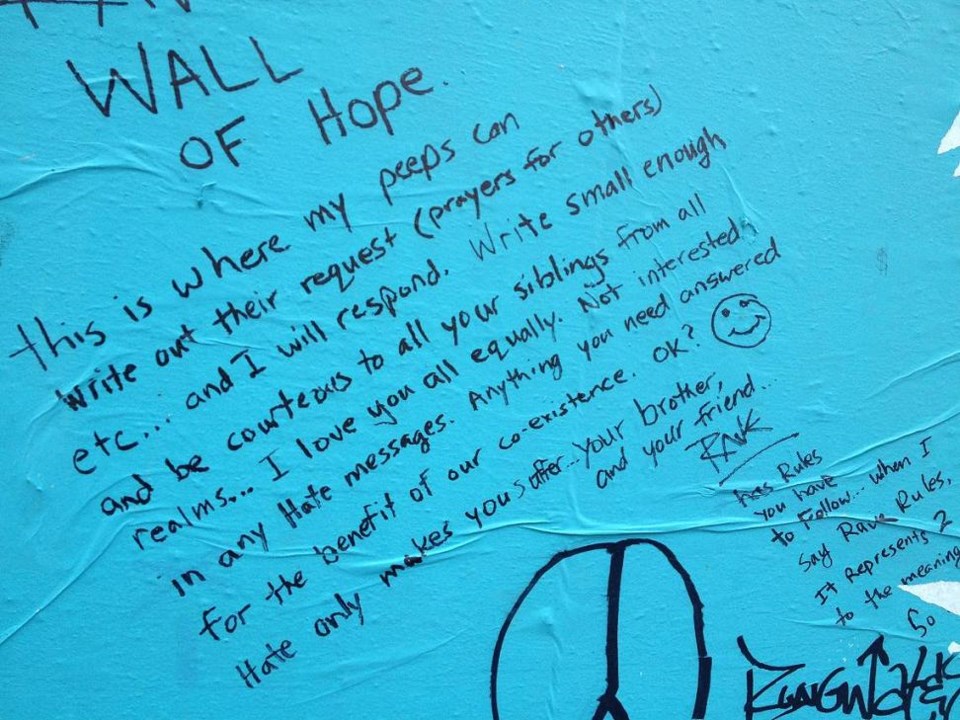 WALL
OF Hope.
this is where my peeps can
write out their request (prayers for others)
etc... and I will respond. Write small enough
and be courteous to all your siblings from all
realms... I love you all equally. Not interested
in any Hate messages. Anything you need answered
for the benefit of our co-existence. OK?
Hate only makes you suffer... your brother,
and your friend...
Rules
you have
to Follow... when I
Say Rave Rules,
It Represents 2
to the meaning
So